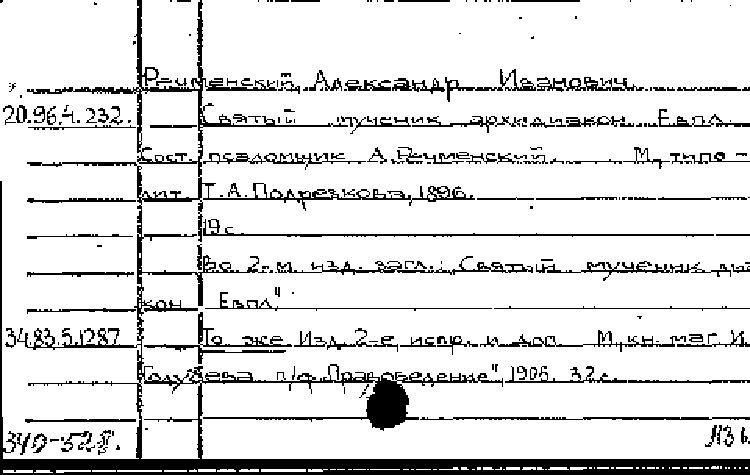 Речменский, Александр Иванович.
20.96.4.232. Святый мученик архидиакон Евпл.
Сост. псаломщик А.Речменский. М., типо-
лит. Т.А.Подрезкова, 1896.
19с.
Во 2-м изд. загл.: „Святый мученик диа
кон Евпл"
34.83.5.1287 То же. Изд. 2-е, испр. и доп. М., кн. маг. И.
Голубева п/ф „Правоведение", 1906. 32с.
340-528.